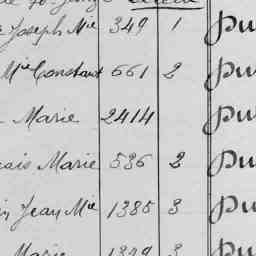 Joseph Mie 349 1 pu
Mie Constant 661 2 pu
Marie 2414 pu
çais Marie 536 2 pu
Jean Mie 1385 3 pu
Marie 1329 3 pu